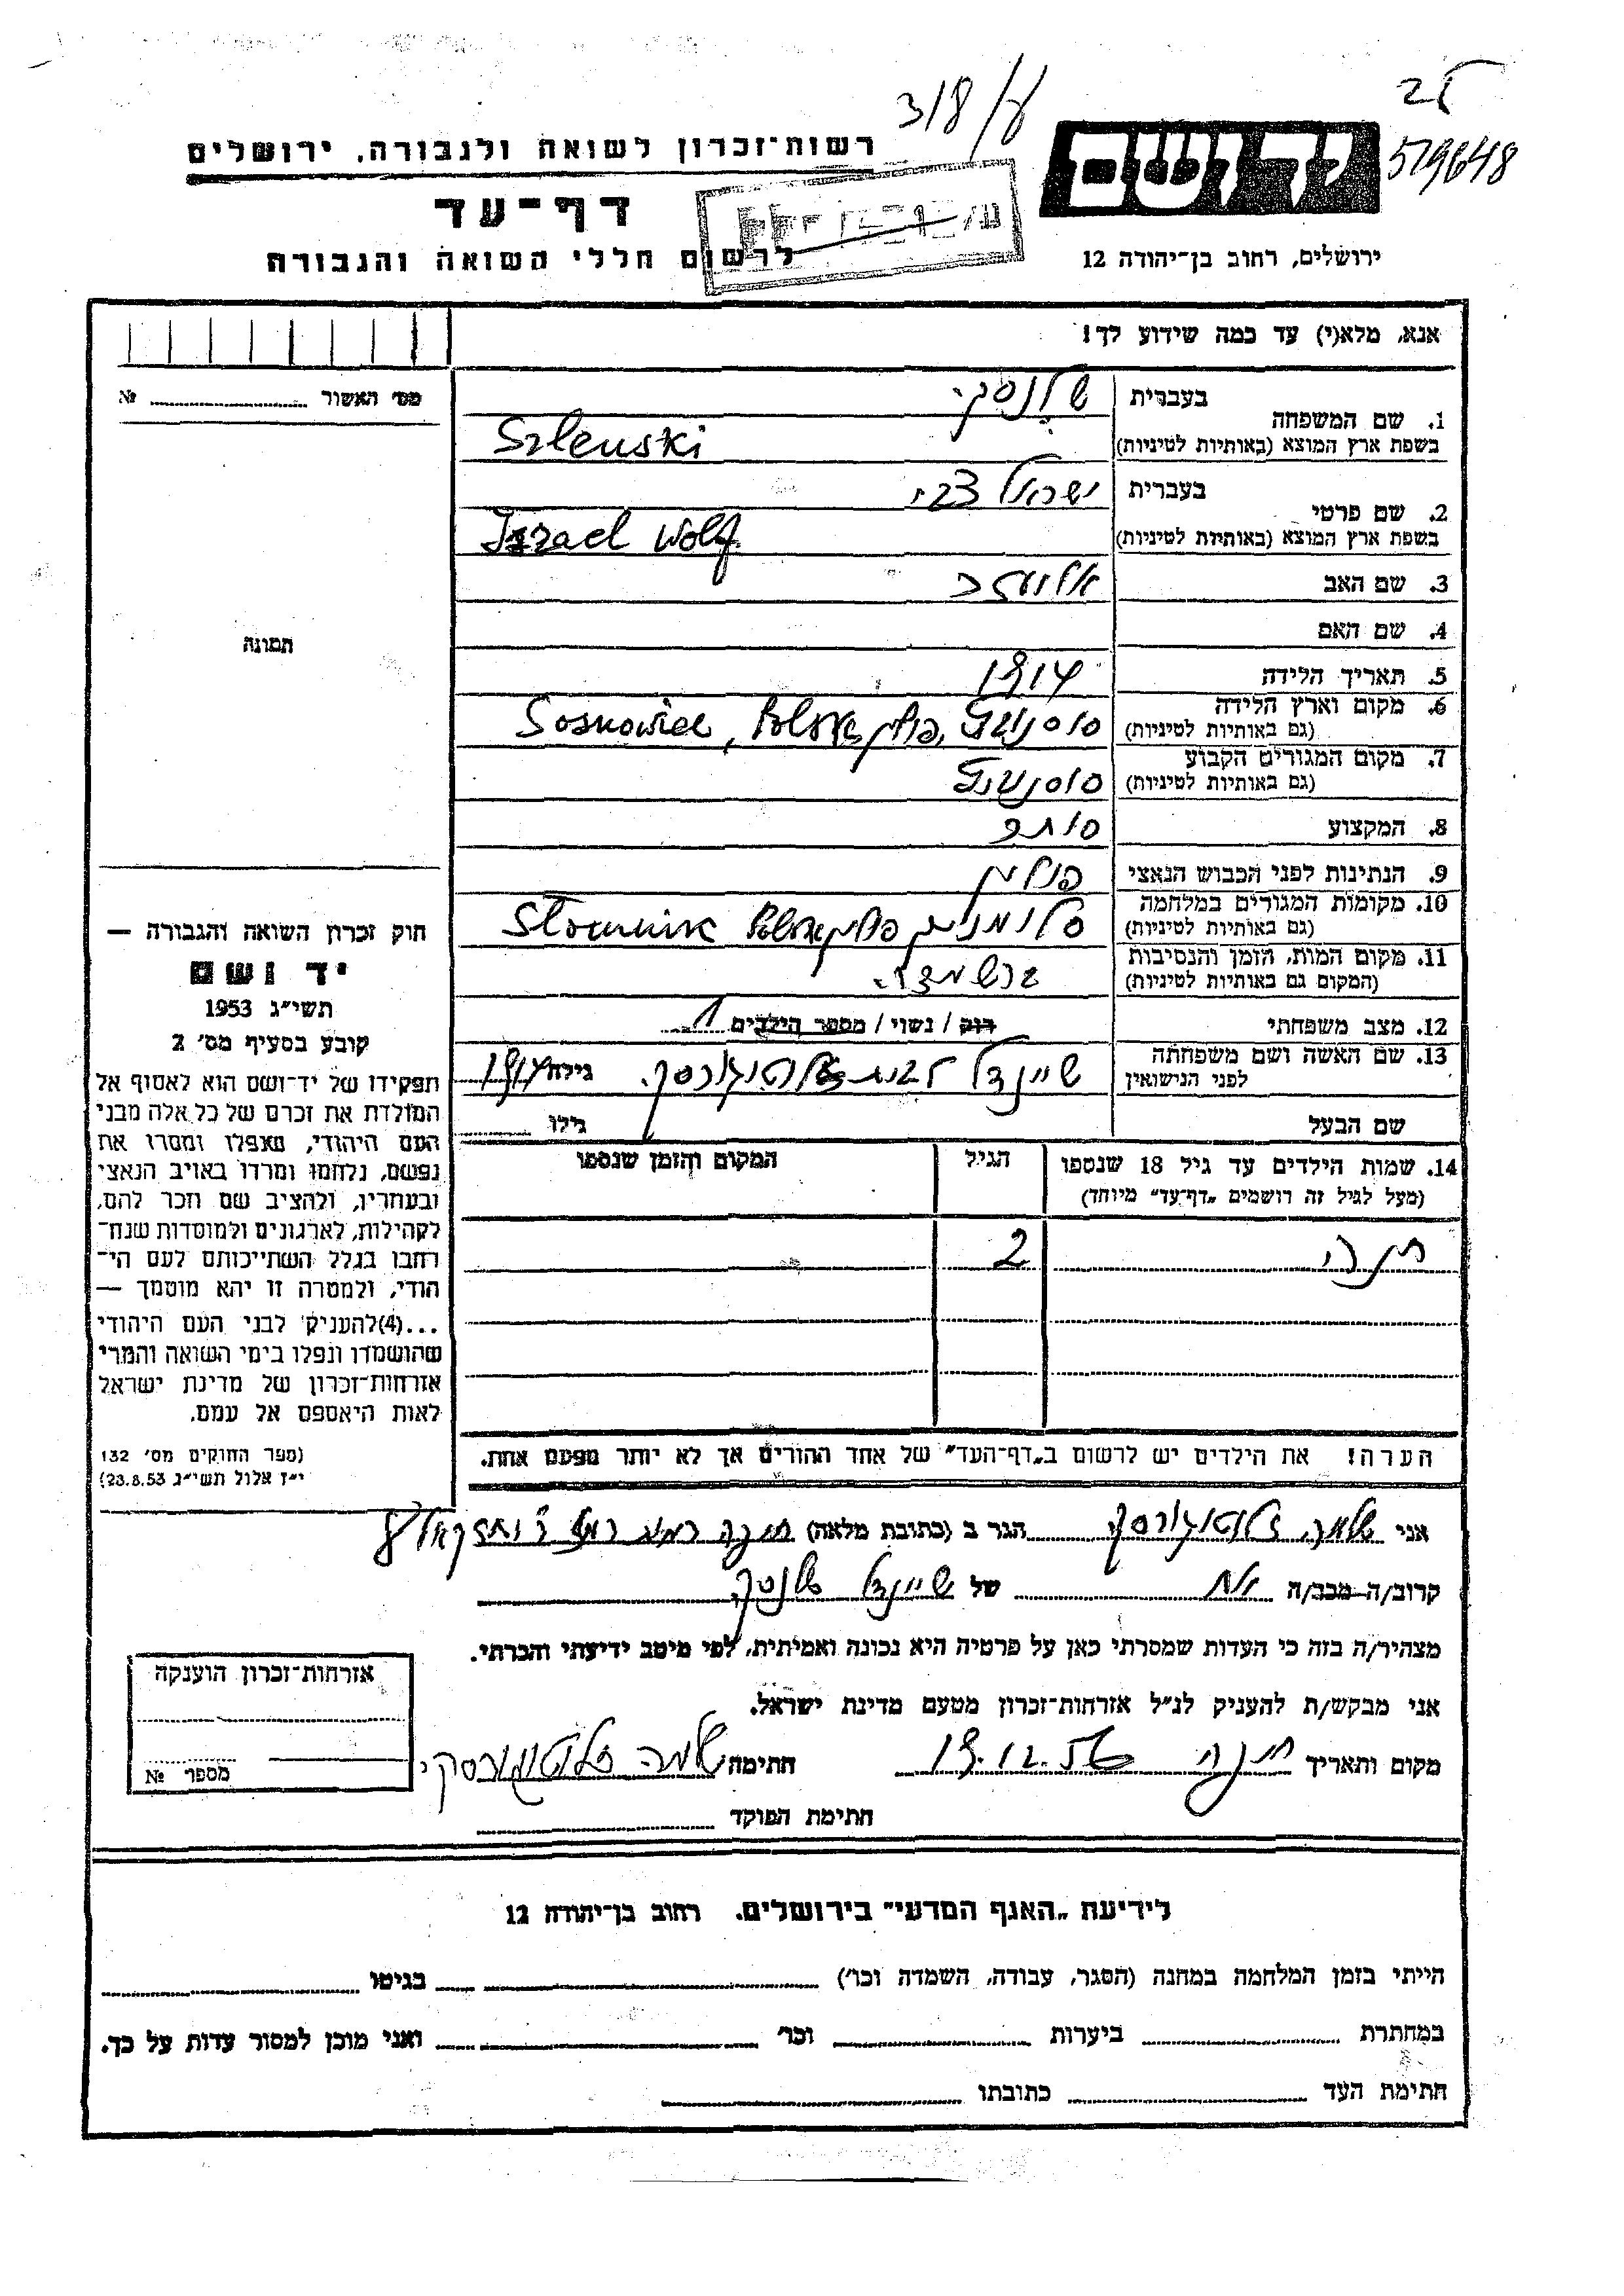 318/ע
25
579648
ידושם
רשות־זכרון לשואה ולגבורה, ירושלים
דף־עד
לרשום חללי השואה והגבורה
ירושלים, רחוב בן־יהודה 12
אנא, מלא(י) עד כמה שידוע לך!
מס׳ האשור № 
1. שם המשפחה
בעברית שלנסקי
בשפת ארץ המוצא (באותיות לטיניות) Szlenski
2. שם פרטי
בעברית ישראל צבי
בשפת ארץ המוצא (באותיות לטיניות) Izrael Wolf
3. שם האב אליעזר
4. שם האם
תמונה
5. תאריך הלידה 1914
6. מקום וארץ הלידה
(גם באותיות לטיניות) סוסנוביץ, פולין Sosnowiec, Polska
7. מקום המגורים הקבוע
(גם באותיות לטיניות) סוסנוביץ
8. המקצוע סוחר
9. הנתינות לפני הכבוש הנאצי פולין
10. מקומות המגורים במלחמה
(גם באותיות לטיניות) פולין Polska
11. מקום המות, הזמן והנסיבות
(המקום גם באותיות לטיניות)
12. מצב משפחתי רוק / נשוי / מספר הילדים 1
13. שם האשה ושם משפחתה
לפני הנישואין שיינדל לבית זלוטוגורסקי גילה 1914
שם הבעל גילו
14. שמות הילדים עד גיל 18 שנספו
(מעל לגיל זה רושמים „דף־עד״ מיוחד)
הגיל
המקום והזמן שנספו
חנה 2
הערה! את הילדים יש לרשום ב„דף־העד״ של אחד ההורים אך לא יותר מפעם אחת.
חוק זכרון השואה והגבורה —
יד ושם
תשי״ג 1953
קובע בסעיף מס׳ 2
תפקידו של יד־ושם הוא לאסוף אל
המולדת את זכרם של כל אלה מבני
העם היהודי, שנפלו ומסרו את
נפשם, נלחמו ומרדו באויב הנאצי
ובעוזריו, ולהציב שם וזכר להם,
לקהילות, לארגונים ולמוסדות שנח־
רבו בגלל השתייכותם לעם הי־
הודי, ולמטרה זו יהא מוסמך —
...(4)להעניק לבני העם היהודי
שהושמדו ונפלו בימי השואה והמרי
אזרחות־זכרון של מדינת ישראל
לאות היאספם אל עמם.
(ספר החוקים מס׳ 132
י״ז אלול תשי״ג 23.8.53)
אני שלמה זלוטוגורסקי הגר ב (כתובת מלאה) חיפה
קרוב/ה מכר/ה אח של שיינדל שלנסקי
מצהיר/ה בזה כי העדות שמסרתי כאן על פרטיה היא נכונה ואמיתית, לפי מיטב ידיעתי והכרתי.
אני מבקש/ת להעניק לנ״ל אזרחות־זכרון מטעם מדינת ישראל.
מקום ותאריך חיפה 19.12.56 חתימה שלמה זלוטוגורסקי
חתימת הפוקד
אזרחות־זכרון הוענקה
מספר №
לידיעת „האגף המדעי״ בירושלים. רחוב בן־יהודה 12
הייתי בזמן המלחמה במחנה (הסגר, עבודה, השמדה וכו׳) בגיטו
במחתרת ביערות וכו׳ ואני מוכן למסור עדות על כך.
חתימת העד כתובתו